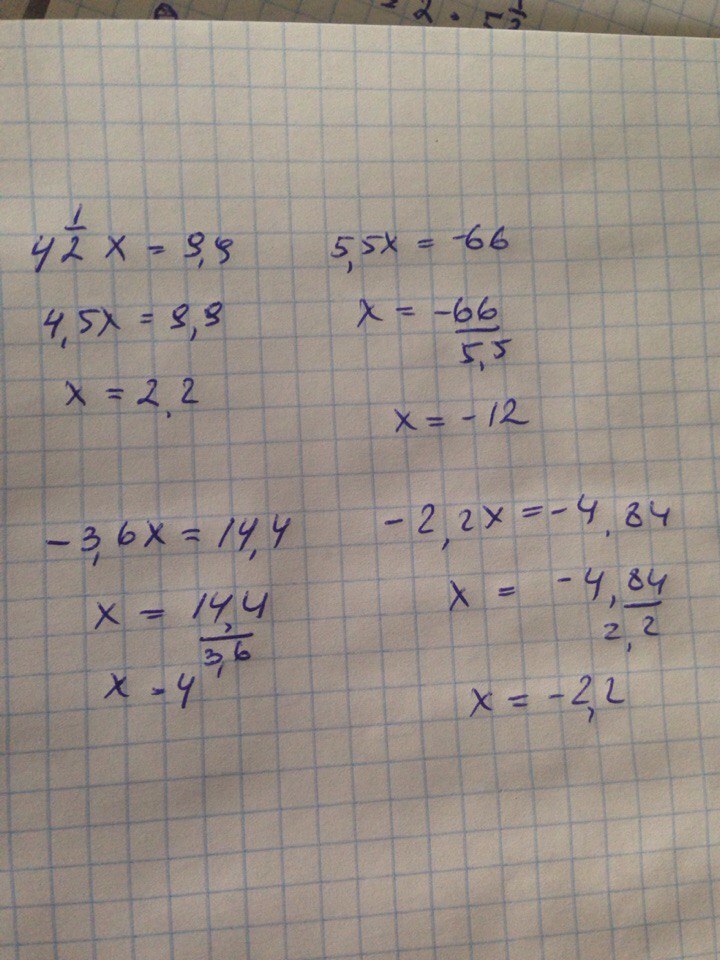 4 1/2 x = 9,9
4,5x = 9,9
x = 2,2
5,5x = -66
x = -66/5,5
x = -12
-3,6x = 14,4
x = 14,4/3,6
x = 4
-2,2x = -4,84
x = -4,84/2,2
x = -2,2